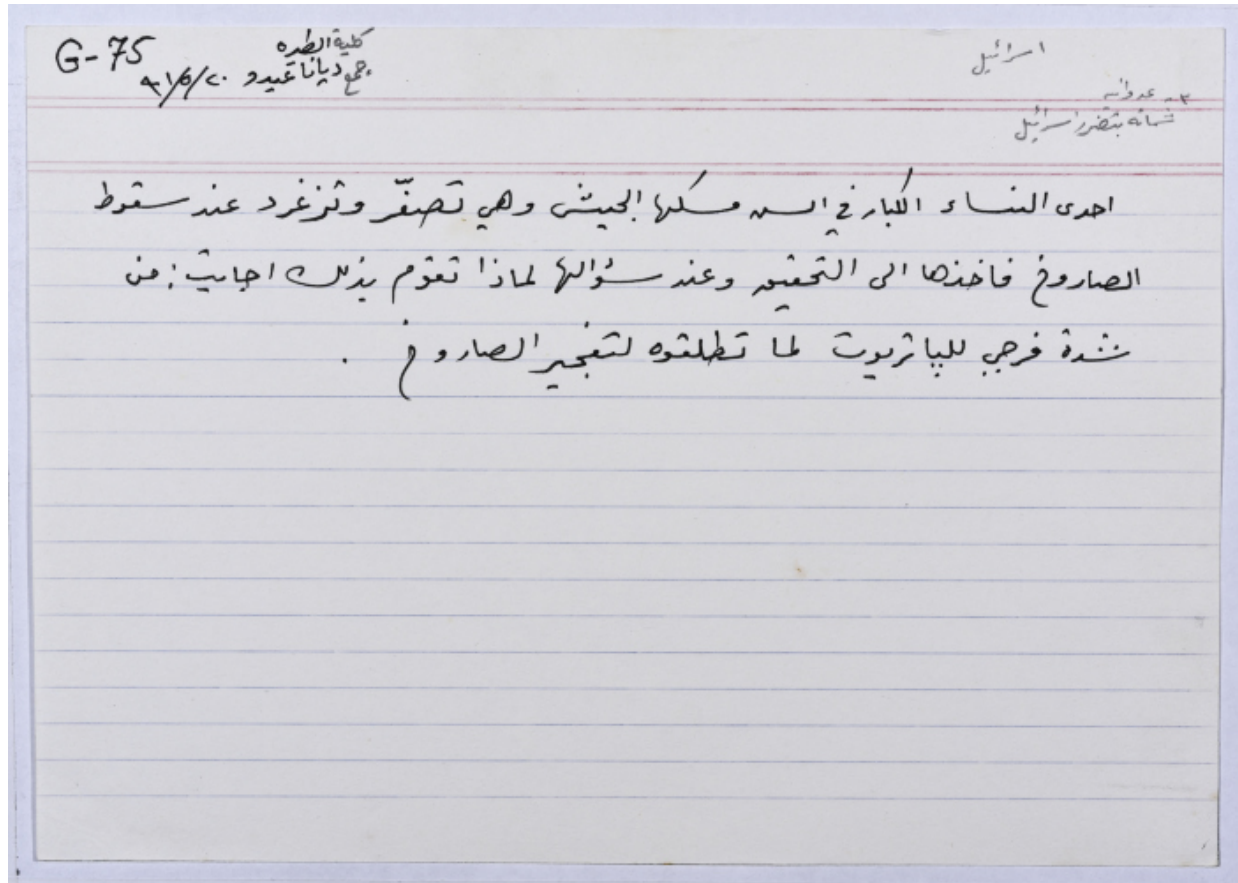 G-75
كلية الطيره
جمع ديانا عبدو ٩١/٥/٢٠
اسرائيل
٣- عدوانيه
شماته بتضرر اسرائيل
احدى النساء الكبار في السن مسكها الجيش وهي تصفّر وتزغرد عند سقوط
الصاروخ فاخذها الى التحقيق وعند سؤالها لماذا تقوم بذلك اجابت: من
شدة فرحي للپاتريوت لما تطلقوه لتفجير الصاروخ .